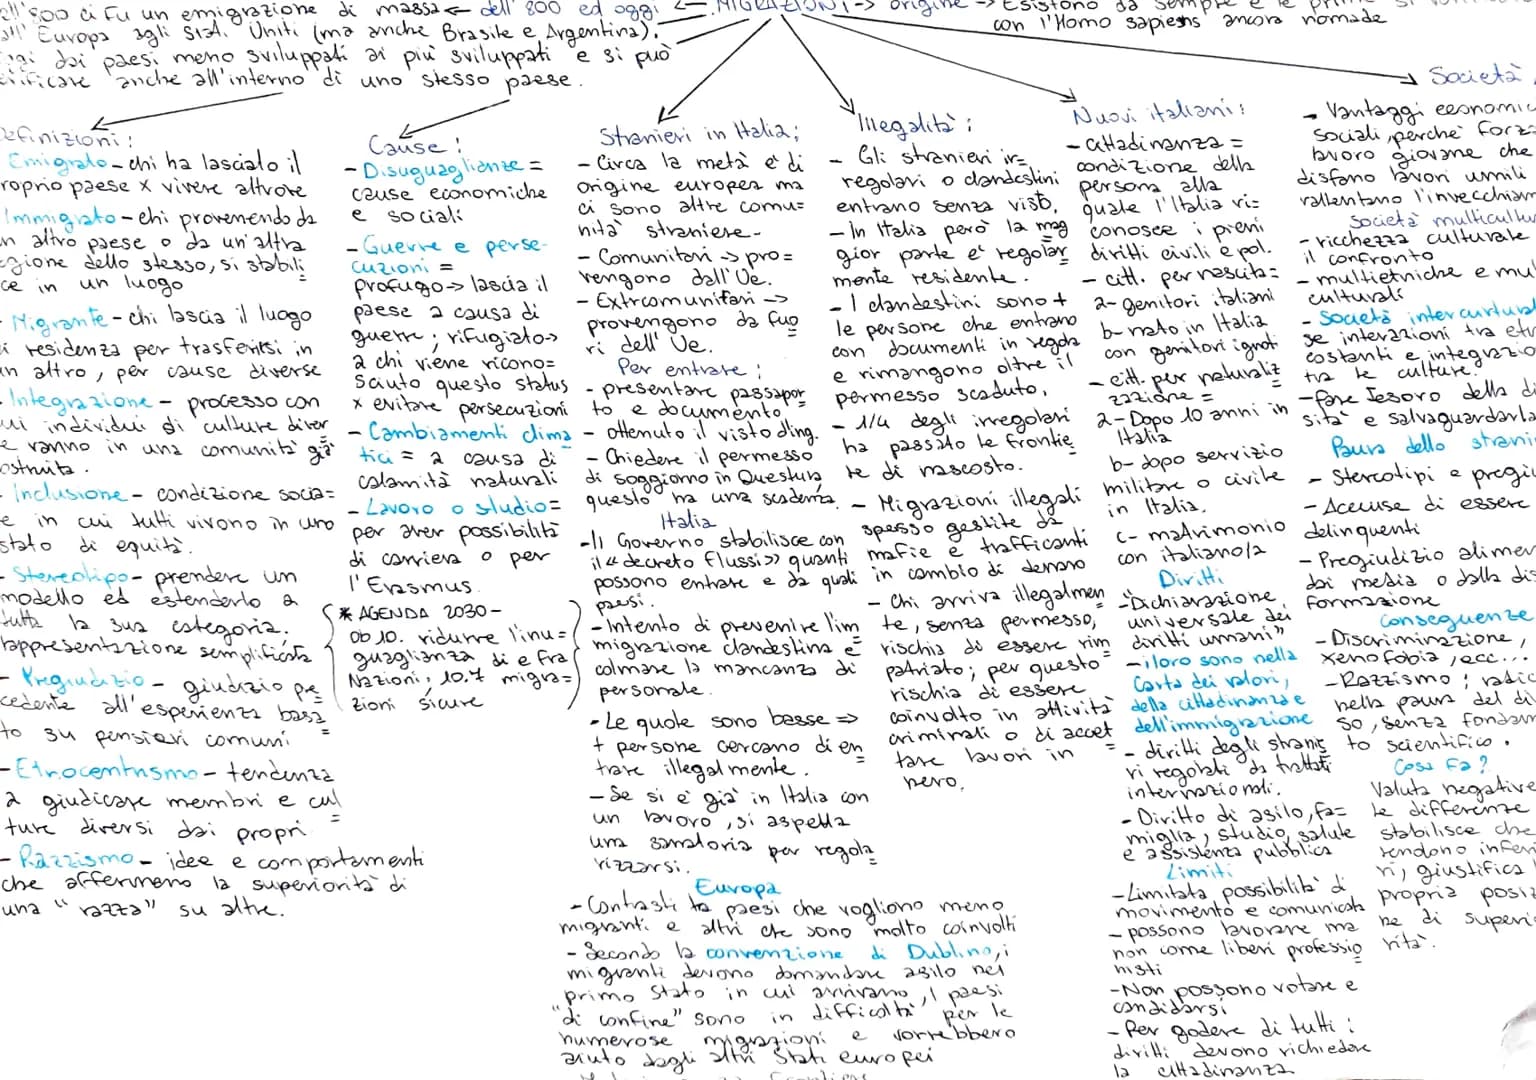 dell'800 ed oggi <- MIGRAZIONI -> origine -> Esistono da sempre e le prime si
con l'Homo sapiens ancora nomade
'800 ci fu un emigrazione di massa <-
all'Europa agli Stat. Uniti (ma anche Brasile e Argentina).
dai paesi meno sviluppati ai più sviluppati e si può
anche all'interno di uno stesso paese.
efinizioni:
Emigrato - chi ha lasciato il
roprio paese x vivere altrove
Immigrato - chi provenendo da
n altro paese o da un'altra
egione dello stesso, si stabili
ce in un luogo
- Migrante - chi lascia il luogo
i residenza per trasferirsi in
un altro, per cause diverse
- Integrazione - processo con
ui individui di culture diver
e vanno in una comunità già
ostruita.
- Inclusione - condizione socia=
e in cui tutti vivono in uno
stato di equità.
- Stereotipo - prendere un
modello ed estenderlo a
tutta la sua categoria.
rappresentazione semplificata
- Pregiudizio - giudizio pre
cedente all'esperienza basa
to su pensieri comuni
- Etnocentrismo - tendenza
a giudicare membri e cul
ture diversi dai propri
- Razzismo - idee e comportamenti
che affermano la superiorità di
una "razza" su altre.
Cause:
- Disuguaglianze =
cause economiche
e sociali
- Guerre e perse-
cuzioni =
profugo -> lascia il
paese a causa di
guerre; rifugiato ->
a chi viene ricono=
sciuto questo status
x evitare persecuzioni
- Cambiamenti clima
tici = a causa di
calamità naturali
- Lavoro o studio =
per aver possibilità
di carriera o per
l'Erasmus.
* AGENDA 2030 -
Ob 10. ridurre l'inu=
guaglianza di e fra
Nazioni; 10.7 migra=
zioni sicure
Stranieri in Italia:
- Circa la metà è di
origine europea ma
ci sono altre comu=
nità straniere.
- Comunitari -> pro=
vengono dall'Ue.
- Extrcomunitari ->
provengono da fuo
ri dell'Ue.
Per entrare:
- presentare passapor
to e documento
- ottenuto il visto d'ing.
- Chiedere il permesso
di soggiorno in Questura,
questo ha una scadenza.
Italia
- Il Governo stabilisce con
il «decreto flussi» quanti
possono entrare e da quali
paesi.
- Intento di prevenire l'im
migrazione clandestina e
colmare la mancanza di
personale.
- Le quote sono basse =>
+ persone cercano di en
trare illegalmente.
- Se si è già in Italia con
un lavoro, si aspetta
una sanatoria per regola
rizzarsi.
Europa
- Contrasti tra paesi che vogliono meno
migranti e altri che sono molto coinvolti
- Secondo la convenzione di Dublino, i
migranti devono domandare asilo nel
primo Stato in cui arrivano, I paesi
"di confine" sono in difficoltà per le
numerose migrazioni e vorrebbero
aiuto dagli altri Stati europei
Illegalità:
- Gli stranieri ir=
regolari o clandestini
entrano senza visto,
- In Italia però la mag
gior parte è regolar
mente residente.
- I clandestini sono +
le persone che entrano
con documenti in regola
e rimangono oltre il
permesso scaduto,
- 1/4 degli irregolari
ha passato le frontie
re di nascosto.
- Migrazioni illegali
spesso gestite da
mafie e trafficanti
in cambio di denaro
- Chi arriva illegalmen
te, senza permesso,
rischia di essere rim
patriato; per questo
rischia di essere
coinvolto in attività
criminali o di accet
tare lavori in
nero.
Nuovi italiani:
- cittadinanza =
condizione della
persona alla
quale l'Italia ri=
conosce i pieni
diritti civili e pol.
- citt. per nascita =
a- genitori italiani
b- nato in Italia
con genitori ignoti
- citt. per naturaliz
zazione =
a- Dopo 10 anni in
Italia
b- dopo servizio
militare o civile
in Italia.
c- matrimonio
con italiano/a
Diritti
- "Dichiarazione
universale dei
diritti umani"
- i loro sono nella
Carta dei valori,
della cittadinanza e
dell'immigrazione
- diritti degli stranie
ri regolati da trattati
internazionali.
- Diritto di asilo, fa=
miglia, studio, salute
e assistenza pubblica
Limiti
- Limitata possibilità di
movimento e comunicato
- possono lavorare ma
non come liberi professio
nisti
- Non possono votare e
candidarsi
- Per godere di tutti i
diritti devono richiedere
la cittadinanza
Società
- Vantaggi economic
sociali, perché forza
lavoro giovane che
disfano lavori umili
rallentano l'invecchiam
società multicultu
- ricchezza culturale
il confronto
- multietniche e mul
culturali
- Società intercultural
se interazioni tra etn
costanti e integrazio
tra le culture.
- fare tesoro della di
sità e salvaguardarla
Paura dello strani
- Stereotipi e pregi
- Accuse di essere
delinquenti
- Pregiudizio alimen
dai media o dalla dis
formazione
Conseguenze
- Discriminazione,
xenofobia, ecc...
- Razzismo; radic
nella paura del di
so, senza fondam
to scientifico.
Cosa fa?
Valuta negative
le differenze
stabilisce che
rendono inferi
ri, giustifica l
propria posiz
ne di superio
rità.